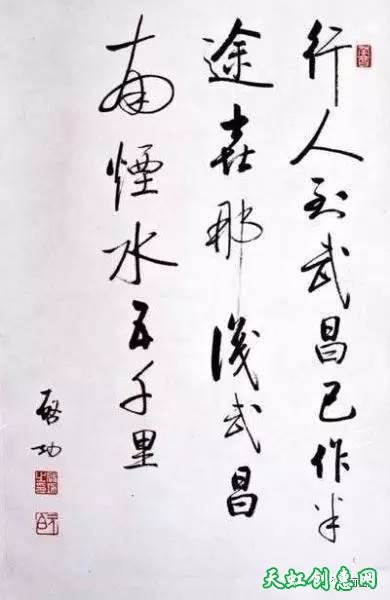 行人到武昌已作半
途喜那識武昌
南煙水五千里
啟功
天虹创意网